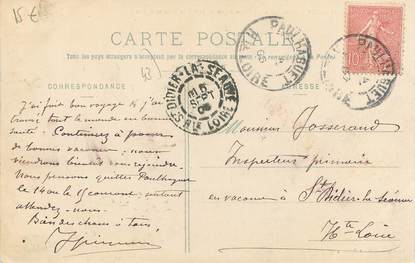 15 €
CARTE POSTALE
Tous les pays étrangers n'acceptent pas la correspondance au recto
43
CORRESPONDANCE
ADRESSE
PAULHAGUET
Hte LOIRE
PAULHAGUET
10
St DIDIER-LA-SEAUVE
SEPT
Hte LOIRE
J'ai fait bon voyage & j'ai
trouvé tout le monde en bonne
santé. Continuez à passer
de bonnes vacances. Nous
viendrons bientôt vous rejoindre.
Nous pensons quitter Paulhaguet
le 14 ou le 15 courant
attendez-nous.
Bien des choses à tous,
Monsieur Josserand
Inspecteur primaire
en vacances à St Didier-la-Séauve
Hte Loire